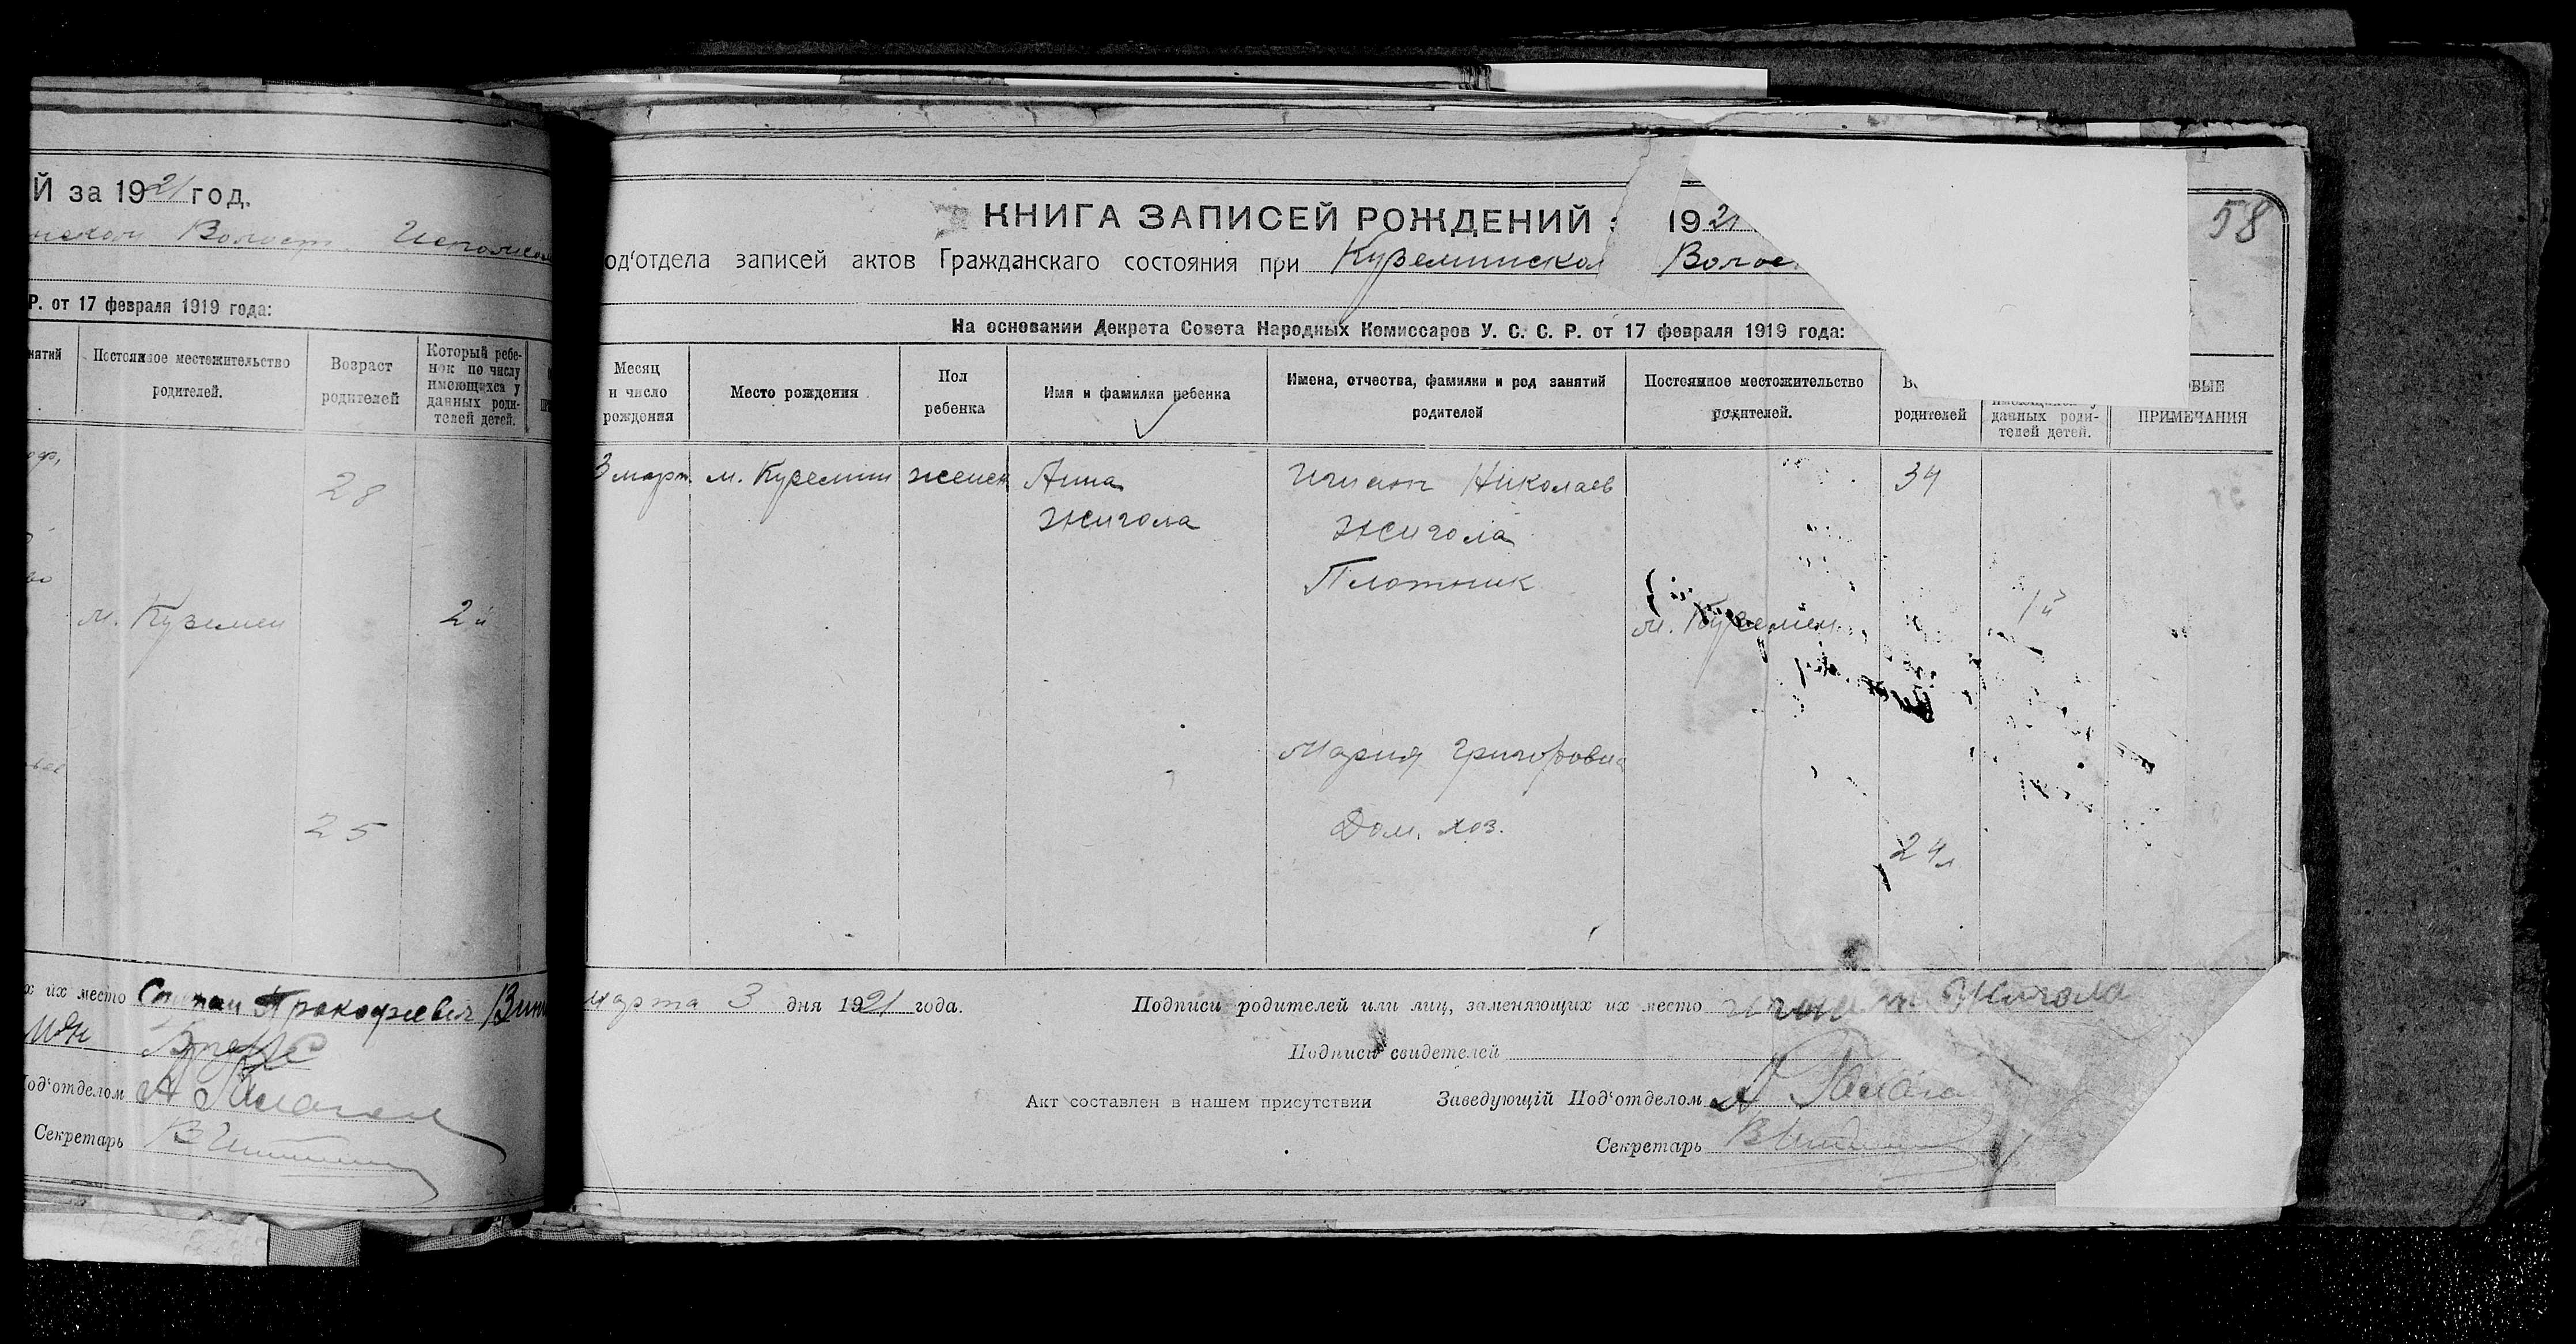 Й за 1921 год.
Волост. Исполком
Р. от 17 февраля 1919 года:
нятий
Постоянное местожительство
родителей.
Возраст
родителей
Который ребе-
нок по числу
имеющихся у
данных роди-
телей детей.
28
м. Куземен
2й
25
х их место Степан Прокофиевич
од'отделом
Секретарь
58
КНИГА ЗАПИСЕЙ РОЖДЕНИЙ 1921
од'отдела записей актов Гражданскаго состояния при Куземинской Волос
На основании Декрета Совета Народных Комиссаров У. С. С. Р. от 17 февраля 1919 года:
Месяц
и число
рождения
Место рождения
Пол
ребенка
Имя и фамилия ребенка
Имена, отчества, фамилии и род занятий
родителей
Постоянное местожительство
родителей.
родителей
имеющихся у
данных роди-
телей детей.
ОВЫЕ
ПРИМЕЧАНИЯ
3 март. м. Куземин женск Анна
Жигола
Николаев
Жигола
Плотник
34
м. Куземен
1й
Мария Григоровна
Дом. хоз.
24 л
марта 3 дня 1921 года.
Подписи родителей или лиц, заменяющих их место Жигола
Подписи свидетелей
Акт составлен в нашем присутствии Заведующій Под'отделом
Секретарь